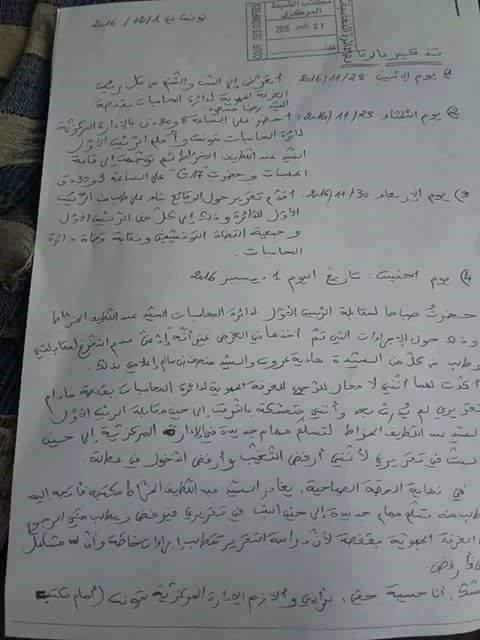 تونس في 2016/12/1
مكتب الضبط
المركزي
2016 ديسمبر 01
COUR DES COMPTES
تذكير بالوقائع
1) يوم الاثنين 2016/11/28 : أتعرض إلى السب والشتم من قبل رئيس
الغرفة الجهوية لدائرة المحاسبات بقفصة
السيد رضا
2) يوم الثلاثاء 2016/11/29 : أحضر على الساعة 8 و30 دق بالإدارة المركزية
لدائرة المحاسبات بتونس و الرئيس الأول
السيد عبد اللطيف الخراط ثم توجهت إلى قاعة
الجلسات وحضرت "G17" على الساعة 9 و30 دق
3) يوم الإربعاء 2016/11/30 أقدم تقرير حول الوقائع بناء على طلب من الرئيس
الأول للدائرة وذلك إلى كل من الرئيس الأول
وجمعية القضاة التونسيين ونقابة قضاة دائرة
المحاسبات.
4) يوم الخميس : تاريخ اليوم 1 ديسمبر 2016
حضرتُ صباحا لمقابلة الرئيس الأول لدائرة المحاسبات السيد عبد اللطيف الخراط
وذلك حول الإجراءات التي تم أخذها في الغرض غير أنه عدم التفرغ لمقابلتي
وطلب من كل من السيدة والسيد بذلك.
أكدت لهما أنني لا مجال للرجوع للغرفة الجهوية لدائرة المحاسبات بقفصة مادام
تقريري لم يُدرس بعد وأنني متمسكة بالبقاء إلى حين مقابلة الرئيس الأول
السيد عبد اللطيف الخراط لتسلم مهام جديدة في الإدارة المركزية إلى حين
البت في تقريري لأنني أرفض التغيب وأرفض الدخول في عطلة.
في نهاية الحصة الصباحية، يغادر السيد عبد اللطيف الخراط مكتبه فأتجه إليه
أطلب منه تسلم مهام جديدة إلى حين البت في تقريري فيرفض ويطلب مني الرجوع
إلى الغرفة الجهوية بقفصة لأن دراسة التقرير تتطلب إجراءات خاصة وأن
فأرفض.
أنا حسبية حقي، وألازم الإدارة المركزية بتونس (أمام مكتب